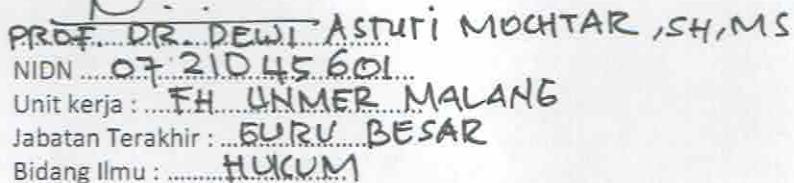 PROF. DR. DEWI ASTUTI MOCHTAR, SH, MS
NIDN ..... 07 210 45 601 ...
Unit kerja : .... FH UNMER MALANG
Jabatan Terakhir : ... GURU BESAR
Bidang Ilmu : ......... HUKUM